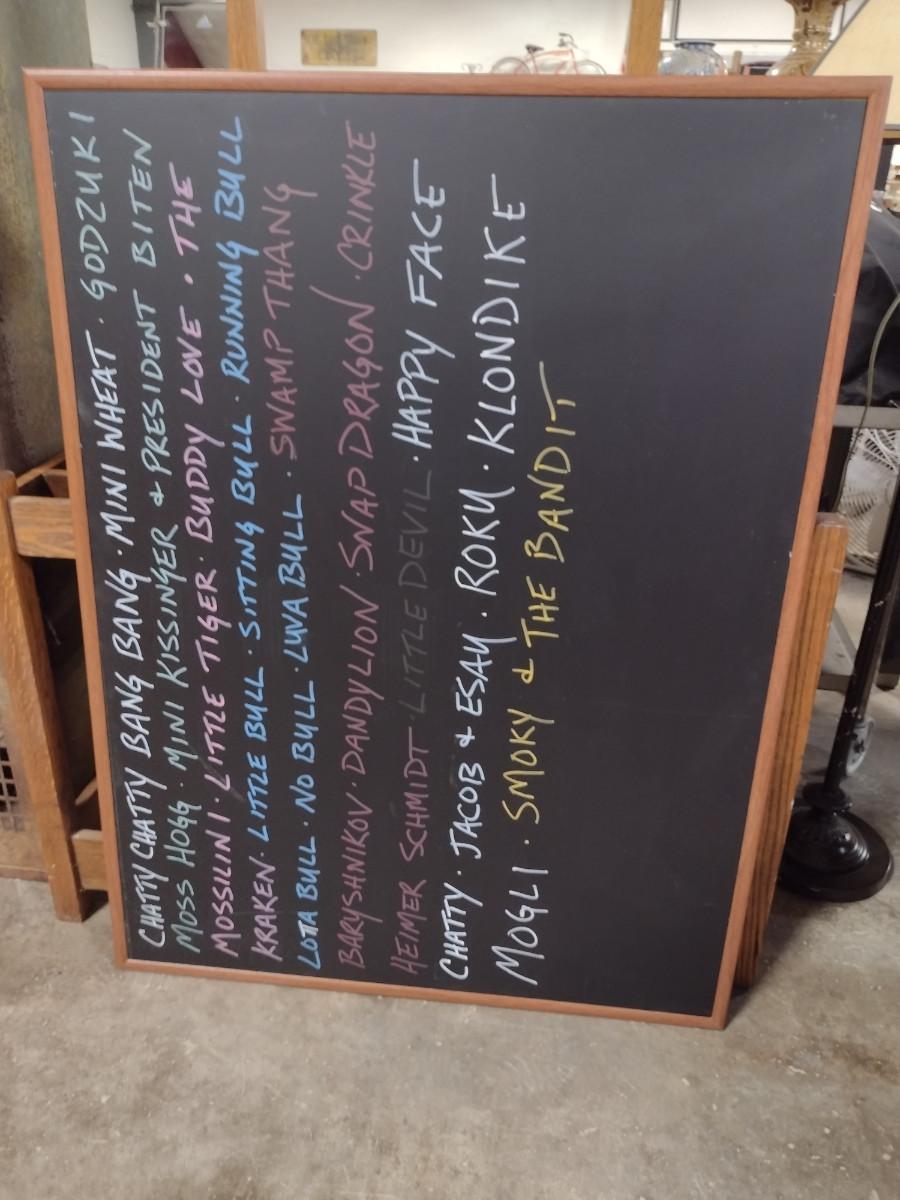 CHATTY CHATTY BANG BANG · MINI WHEAT · GODZUKI
MOSS HOGG · MINI KISSINGER & PRESIDENT BITEN
MOSSILINI · LITTLE TIGER · BUDDY LOVE · THE
KRAKEN · LITTLE BULL · SITTING BULL · RUNNING BULL
LOTTA BULL · NO BULL · LUVA BULL · SWAMP THANG
BARYSHNIKOV · DANDYLION · SNAP DRAGON · CRINKLE
HEIMER SCHMIDT · LITTLE DEVIL · HAPPY FACE
CHATTY · JACOB & ESAU · ROKU · KLONDIKE
MOGLI · SMOKY & THE BANDIT